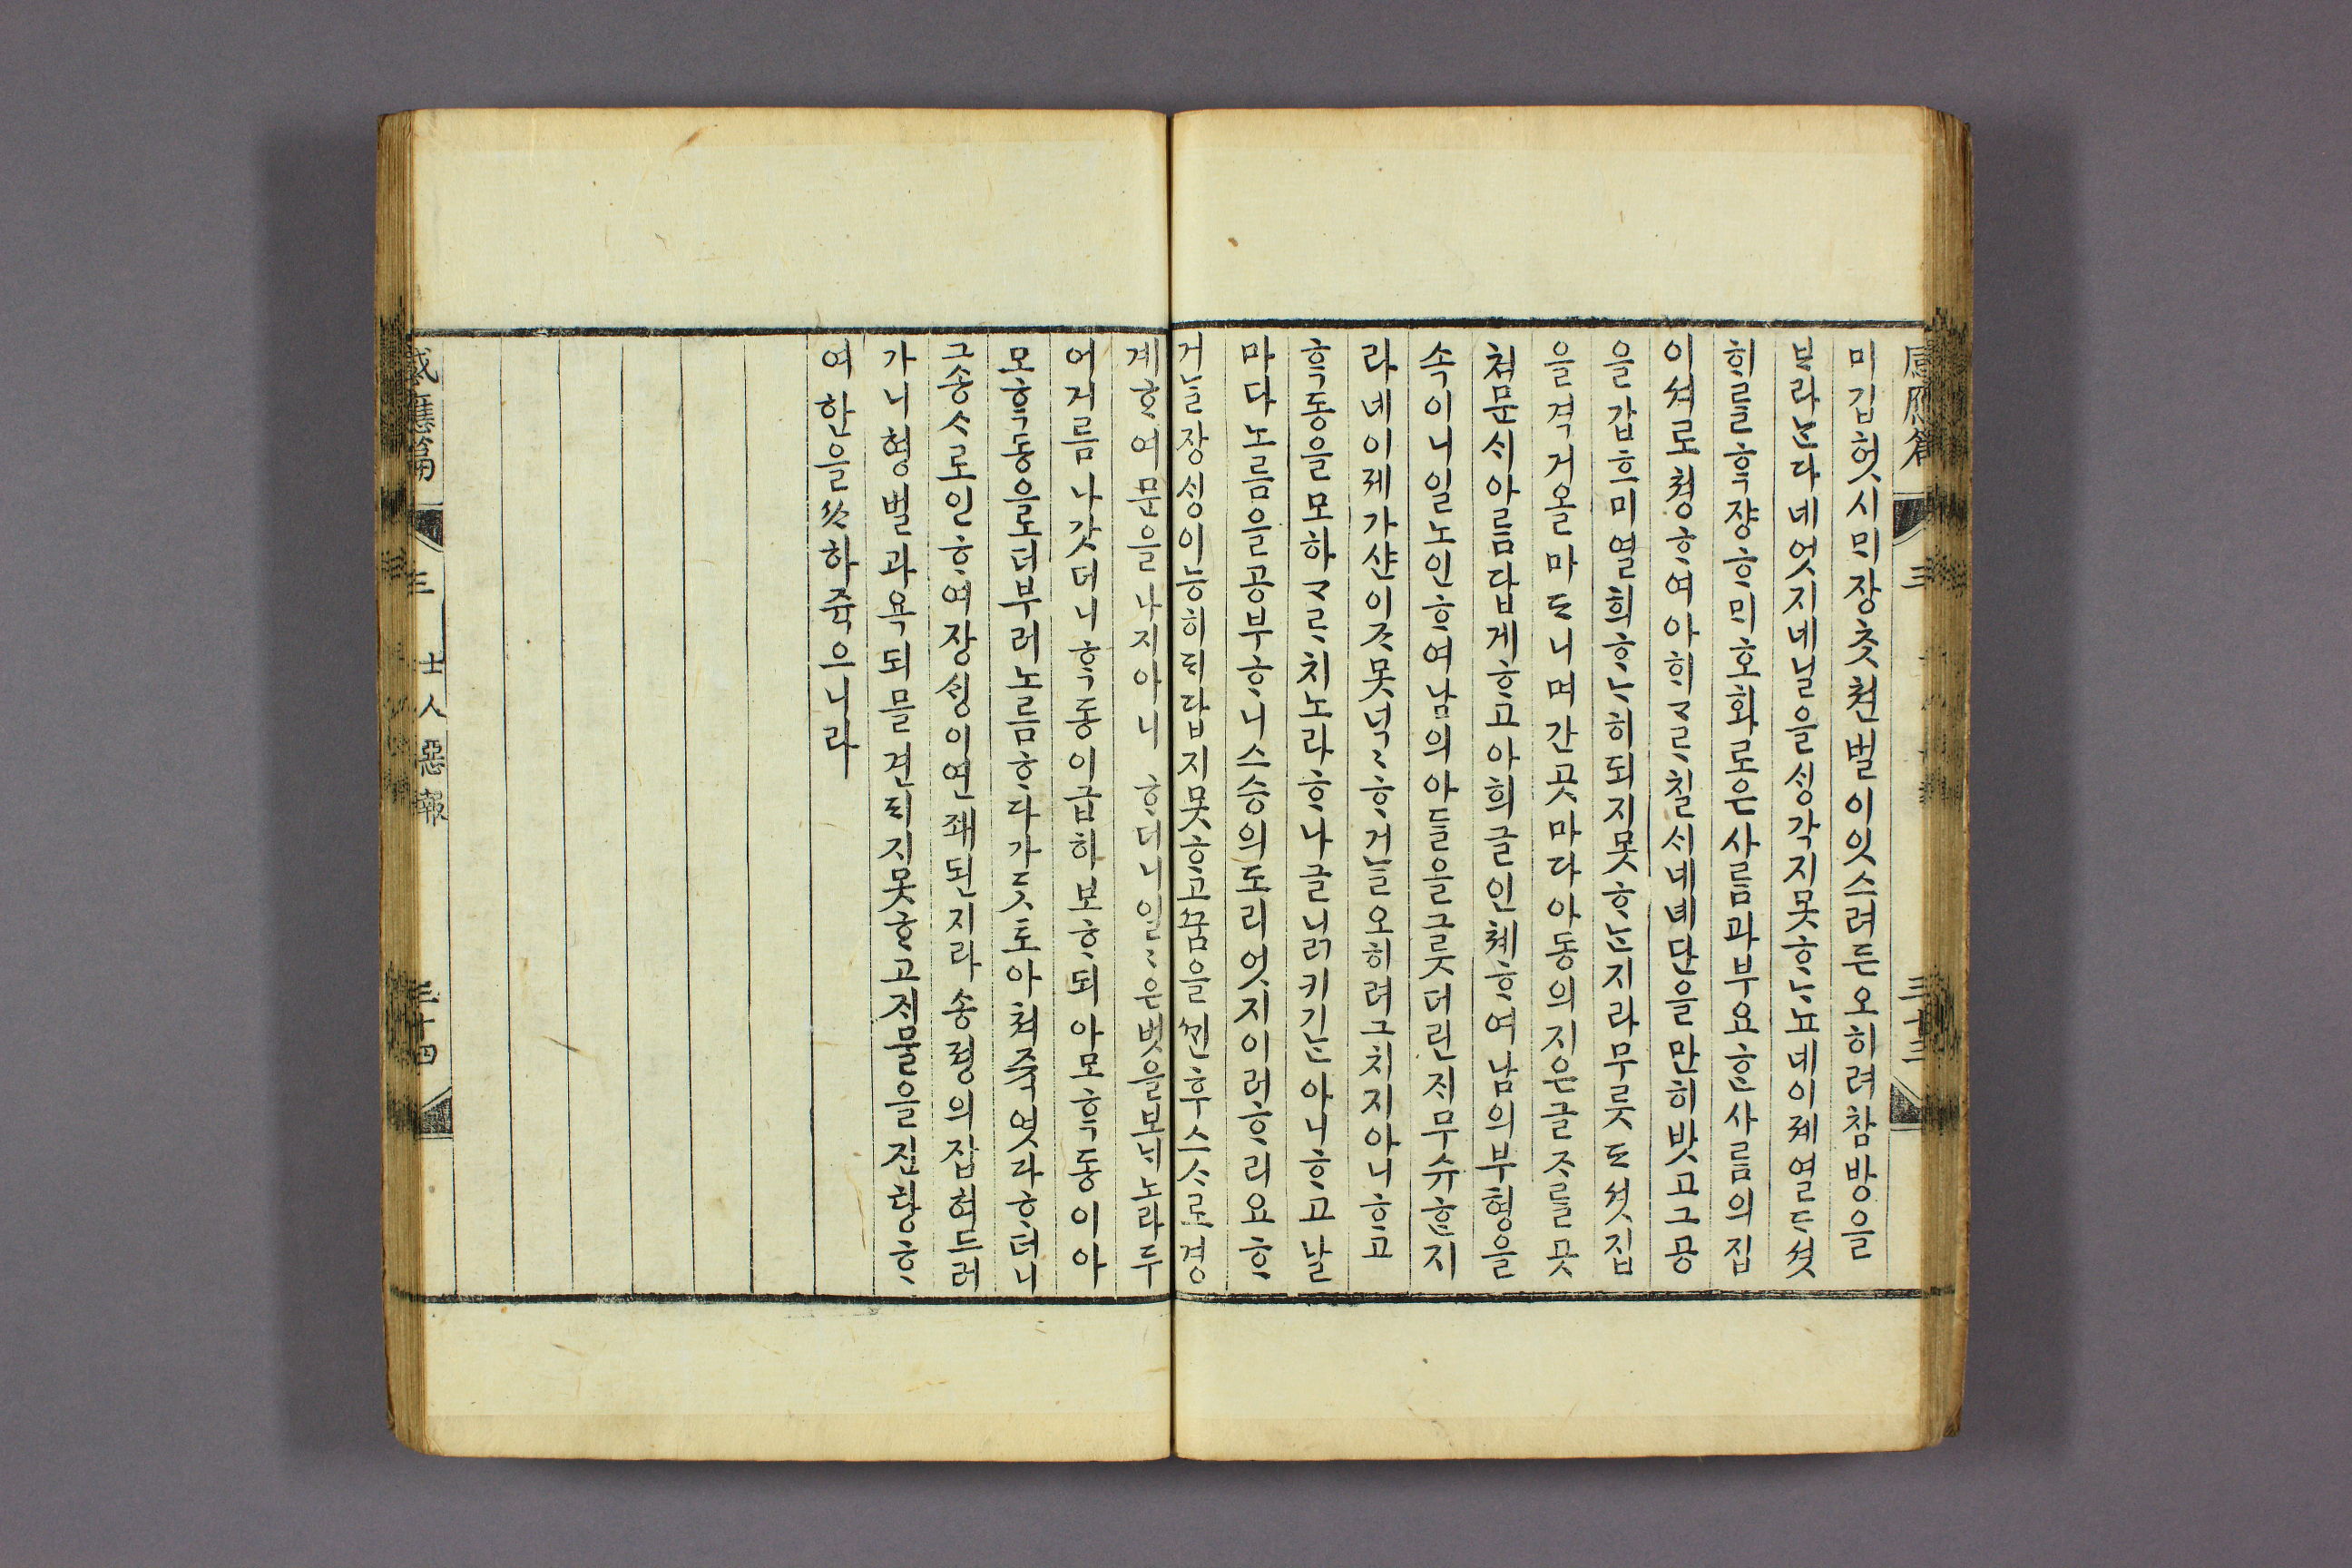 感應篇 三 三十三
미깁헛시미장ᄎᆞᆺ쳔벌이잇스려든오히려참방을
ᄇᆞ라ᄂᆞᆫ다네엇지네날을ᄉᆡᆼ각지못ᄒᆞᄂᆞ뇨네이졔열다ᄉᆞᆺ
ᄒᆡ를ᄒᆞᆨ쟝ᄒᆞ미호화로운사ᄅᆞᆷ과부요ᄒᆞᆫ사ᄅᆞᆷ의집
이셔로쳥ᄒᆞ여아ᄒᆡᄀᆞᄅᆞ칠ᄉᆡ네녜단을만히밧고그공
을갑흐미열희ᄒᆞᄂᆞ히되지못ᄒᆞᄂᆞᆫ지라무릇ᄃᆞᄉᆞᆺ집
을격거올마ᄃᆞ니며간곳마다아동의지은글ᄌᆞ를곳
쳐문ᄉᆡ아름답게ᄒᆞ고아희글인쳬ᄒᆞ여남의부형을
속이니일노인ᄒᆞ여남의아ᄃᆞᆯ을그릇더린ᄌᆡ무슈ᄒᆞᆫ지
라네이졔가산이ᄌᆞ못넉〻ᄒᆞ거늘오히려그치지아니ᄒᆞ고
ᄒᆞᆨ동을모하ᄀᆞᄅᆞ치노라ᄒᆞ나글닑키기ᄂᆞᆫ아니ᄒᆞ고날
마다노름을공부ᄒᆞ니스승의도리엇지이러ᄒᆞ리요ᄒᆞ
거늘장ᄉᆡᆼ이능히ᄃᆡ답지못ᄒᆞ고ᄭᅮᆷ을ᄭᆡᆫ후스ᄉᆞ로경
계ᄒᆞ여문을나지아니ᄒᆞ더니일〻은벗을보ᄂᆡ노라두
어거름나갓더니ᄒᆞᆨ동이급히보ᄒᆞ되아모ᄒᆞᆨ동이아
모ᄒᆞᆨ동을노더부러노름ᄒᆞ다가ᄃᆞᆺ토아쳐쥭엿다ᄒᆞ더니
그송ᄉᆞ로인ᄒᆞ여장ᄉᆡᆼ이연좨된지라송졍의잡혀드러
가니형벌과옥되믈견ᄃᆡ지못ᄒᆞ고ᄌᆡ물을진탕ᄒᆞ
여한을ᄭᅳᆺ하쥭으니라
感應篇 三 士人惡報 三十四